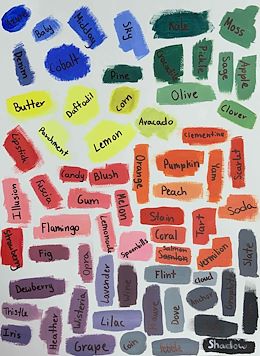 Baby
Midday
Sky
Kale
Moss
Denim
Cobalt
Pine
Avocado
Pickle
Sage
Apple
Olive
Butter
Daffodil
Corn
Clover
Avocado
Lipstick
Parchment
Lemon
Clementine
Orange
Pumpkin
Yam
Scarlet
Candy
Blush
Peach
Illusion
Fuscia
Gum
Melon
Soda
Flamingo
Lemonade
Stain
Tart
Coral
Strawberry
Fig
Opra
Spoonbills
Salmon
Vermilion
Slate
Dewberry
Lavender
Wine
Flint
Cloud
Anchor
Thistle
Wisteria
Dove
Iris
Heather
Lilac
Grape
Coin
Pebble
Shadow